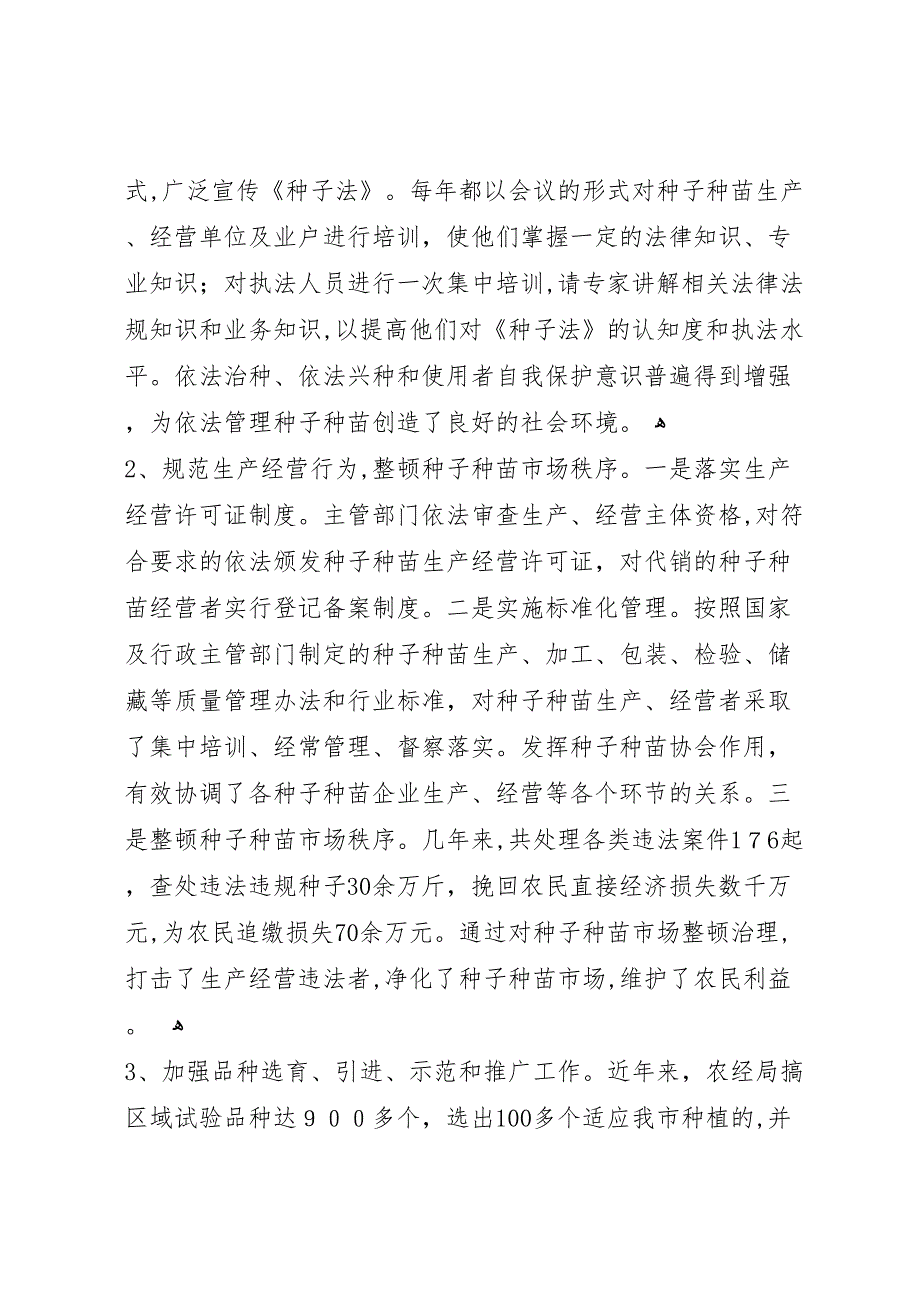 式,广泛宣传《种子法》。每年都以会议的形式对种子种苗生产
、经营单位及业户进行培训，使他们掌握一定的法律知识、专
业知识；对执法人员进行一次集中培训,请专家讲解相关法律法
规知识和业务知识,以提高他们对《种子法》的认知度和执法水
平。依法治种、依法兴种和使用者自我保护意识普遍得到增强
，为依法管理种子种苗创造了良好的社会环境。 ﻫ
2、规范生产经营行为,整顿种子种苗市场秩序。一是落实生产
经营许可证制度。主管部门依法审查生产、经营主体资格,对符
合要求的依法颁发种子种苗生产经营许可证，对代销的种子种
苗经营者实行登记备案制度。二是实施标准化管理。按照国家
及行政主管部门制定的种子种苗生产、加工、包装、检验、储
藏等质量管理办法和行业标准，对种子种苗生产、经营者采取
了集中培训、经常管理、督察落实。发挥种子种苗协会作用，
有效协调了各种子种苗企业生产、经营等各个环节的关系。三
是整顿种子种苗市场秩序。几年来,共处理各类违法案件176起
，查处违法违规种子30余万斤，挽回农民直接经济损失数千万
元,为农民追缴损失70余万元。通过对种子种苗市场整顿治理,
打击了生产经营违法者,净化了种子种苗市场,维护了农民利益
。 ﻫ
3、加强品种选育、引进、示范和推广工作。近年来，农经局搞
区域试验品种达９００多个，选出100多个适应我市种植的,并